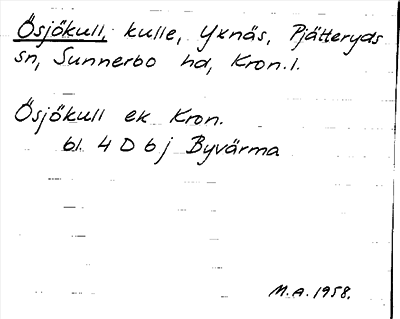 Ösjökull, kulle, Yxnäs, Pjätteryds
sn, Sunnerbo hd, Kron.l.
Ösjökull ek Kron.
bl. 4 D 6 j Byvärma
M.A. 1958.